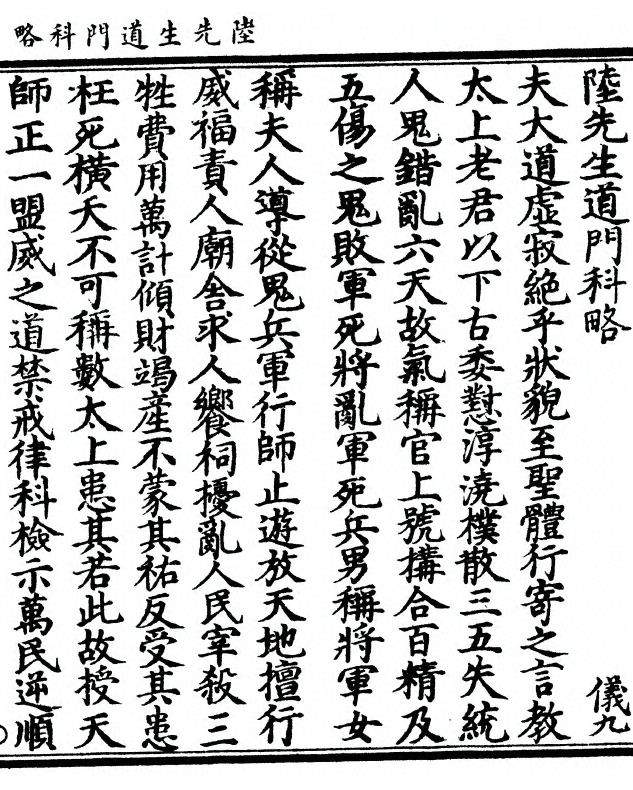 陸先生道門科略
陸先生道門科略　儀九
夫大道虛寂絕乎狀貌至聖體行寄之言教
太上老君以下古委懟淳澆樸散三五失統
人鬼錯亂六天故氣稱官上號搆合百精及
五傷之鬼敗軍死將亂軍死兵男稱將軍女
稱夫人導從鬼兵軍行師止遊放天地擅行
威福責人廟舍求人饗祠擾亂人民宰殺三
牲費用萬計傾財竭產不蒙其祐反受其患
枉死橫夭不可稱數太上患其若此故授天
師正一盟威之道禁戒律科檢示萬民逆順